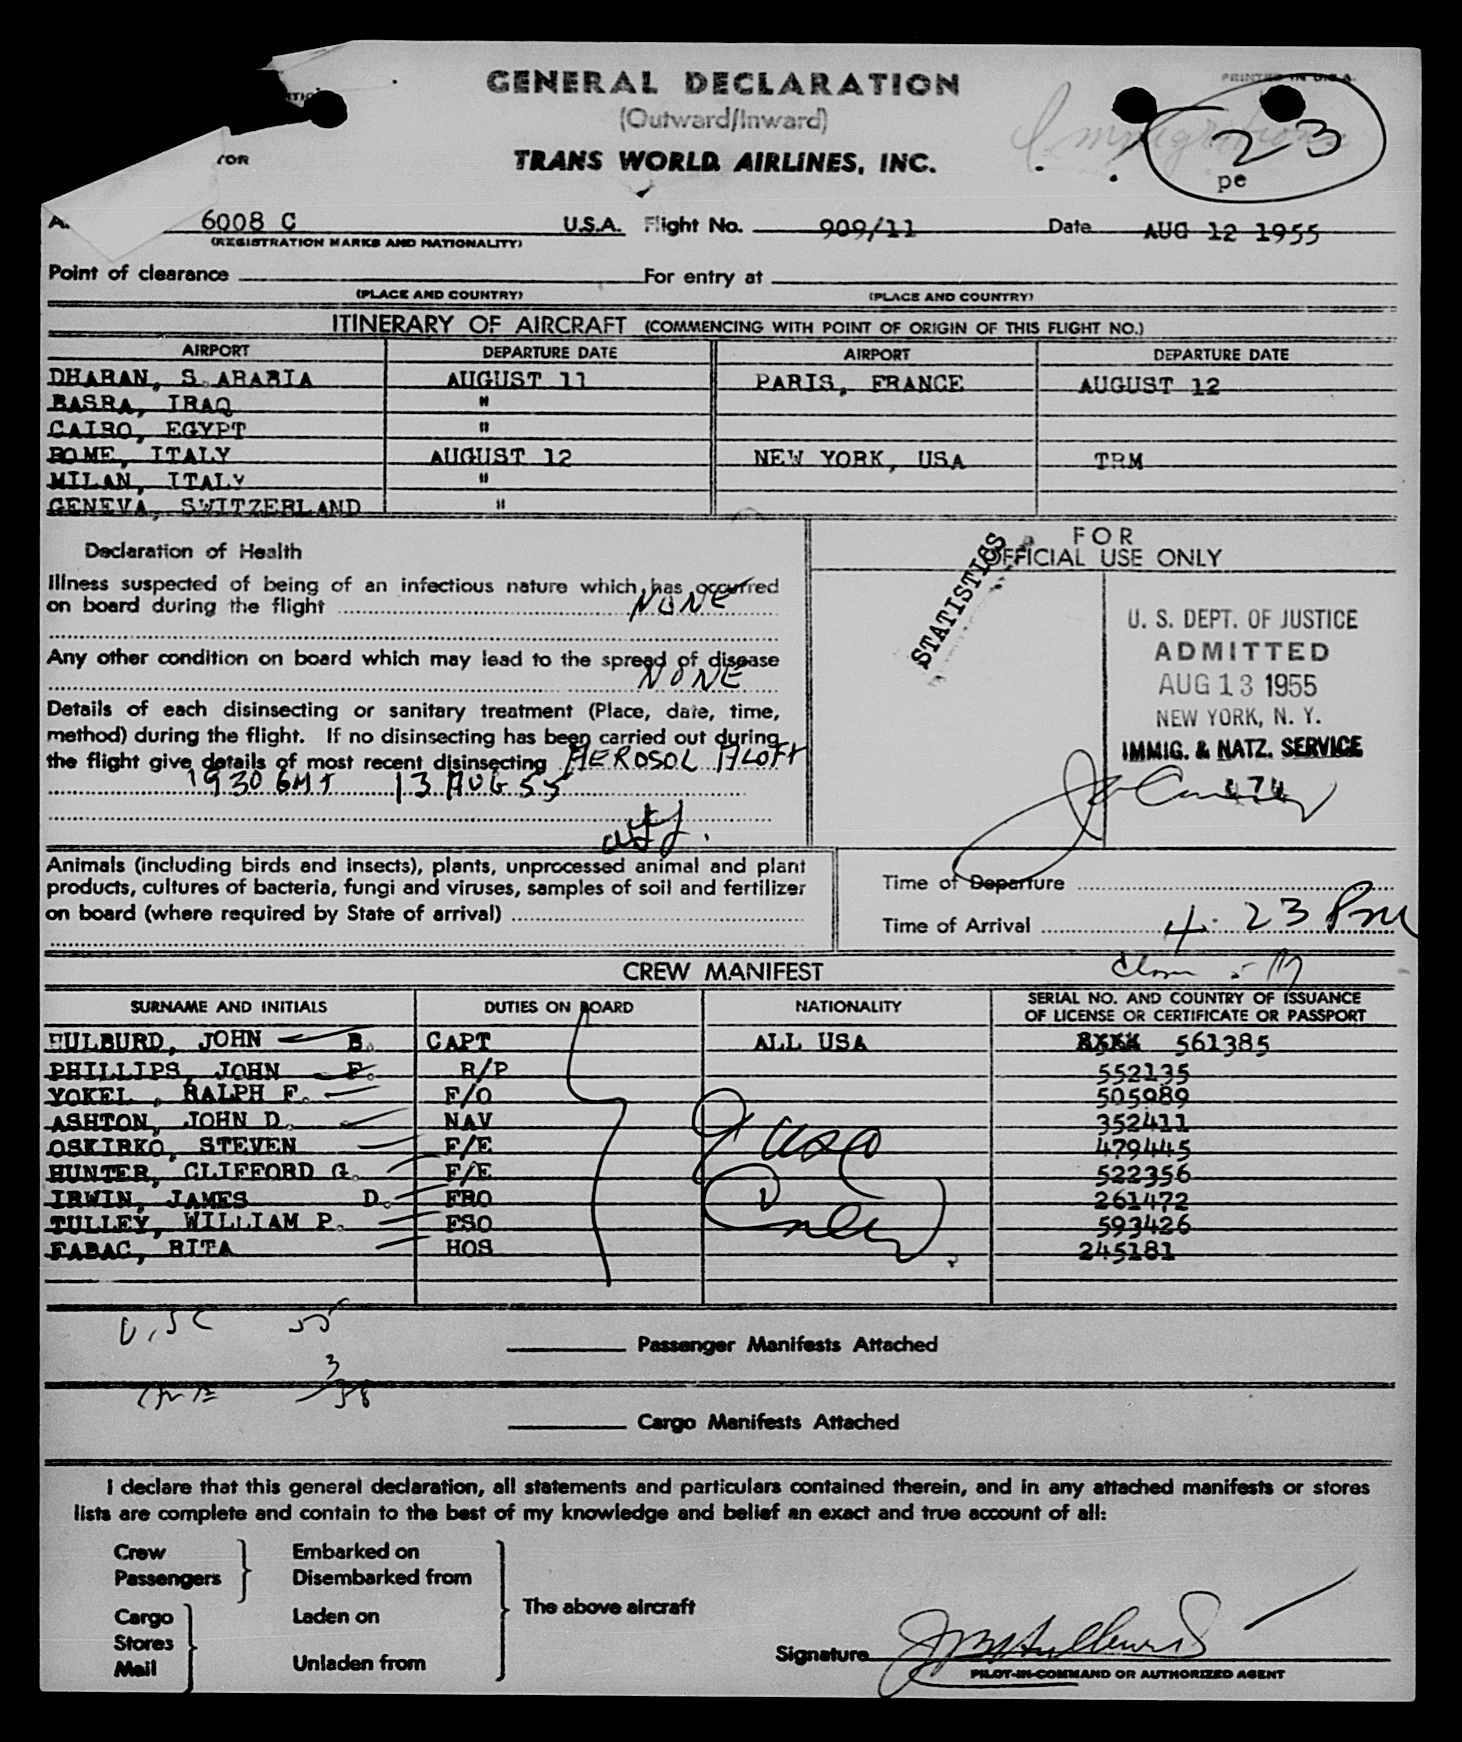 GENERAL DECLARATION
PRINTED IN U.S.A.
(Outward/Inward)
Immigration
23
TOR
TRANS WORLD AIRLINES, INC.
pe
6008 C U.S.A. Flight No. 909/11 Date AUG 12 1955
(REGISTRATION MARKS AND NATIONALITY)
Point of clearance For entry at
(PLACE AND COUNTRY) (PLACE AND COUNTRY)
ITINERARY OF AIRCRAFT (COMMENCING WITH POINT OF ORIGIN OF THIS FLIGHT NO.)
AIRPORT DEPARTURE DATE AIRPORT DEPARTURE DATE
DHARAN, S.ARABIA AUGUST 11 PARIS, FRANCE AUGUST 12
BASRA, IRAQ "
CAIRO, EGYPT "
ROME, ITALY AUGUST 12 NEW YORK, USA TRM
MILAN, ITALY "
GENEVA, SWITZERLAND "
Declaration of Health
Illness suspected of being of an infectious nature which has occurred
on board during the flight NONE
Any other condition on board which may lead to the spread of disease
NONE
Details of each disinsecting or sanitary treatment (Place, date, time,
method) during the flight. If no disinsecting has been carried out during
the flight give details of most recent disinsecting AEROSOL ALOFT
1930 GMT 13 AUG 55
FOR
OFFICIAL USE ONLY
STATISTICS
U. S. DEPT. OF JUSTICE
ADMITTED
AUG 13 1955
NEW YORK, N. Y.
IMMIG. & NATZ. SERVICE
474
Animals (including birds and insects), plants, unprocessed animal and plant
products, cultures of bacteria, fungi and viruses, samples of soil and fertilizer
on board (where required by State of arrival)
Time of Departure
Time of Arrival 4:23 PM
CREW MANIFEST
SURNAME AND INITIALS DUTIES ON BOARD NATIONALITY SERIAL NO. AND COUNTRY OF ISSUANCE
OF LICENSE OR CERTIFICATE OR PASSPORT
HULBURD, JOHN B. CAPT ALL USA 561385
PHILLIPS, JOHN F. R/P 552135
YOKEL, RALPH F. F/O 505989
ASHTON, JOHN D. NAV 352411
OSKIRKO, STEVEN F/E 479445
HUNTER, CLIFFORD G. F/E 522356
IRWIN, JAMES D. FRO 261472
TULLEY, WILLIAM P. FSO 593426
FABAC, RITA HOS 245181
9 USA
only
USC 55
3
58
Passenger Manifests Attached
Cargo Manifests Attached
I declare that this general declaration, all statements and particulars contained therein, and in any attached manifests or stores
lists are complete and contain to the best of my knowledge and belief an exact and true account of all:
Crew Embarked on
Passengers Disembarked from
The above aircraft
Cargo Laden on
Stores
Mail Unladen from
Signature JB Hulburd
PILOT-IN-COMMAND OR AUTHORIZED AGENT